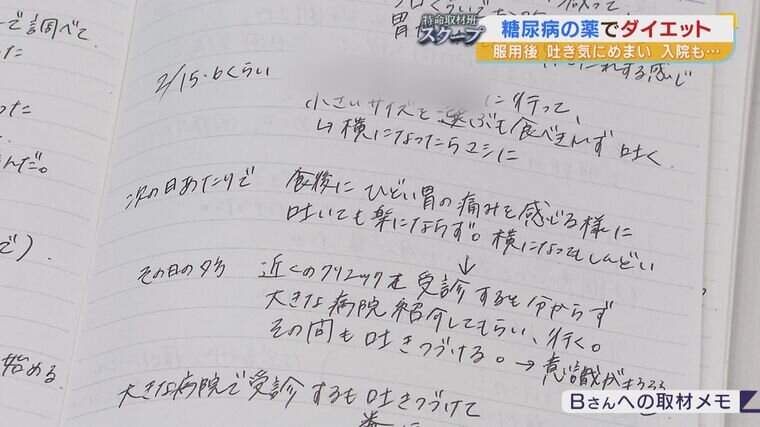 特命取材班
スクープ
糖尿病の薬でダイエット
服用後 吐き気にめまい 入院も…
で調べて
胃
する感じ
2/15・6くらい
に行って、
小さいサイズを選ぶも食べきれず吐く
↳横になったらマシに
次の日あたりで 食後にひどい胃の痛みを感じる様に
吐いても楽にならず。横になってもしんどい
↓
その日の夕方 近くのクリニックを受診するも分からず
大きな病院紹介してもらい、行く。
その間も吐きつづける。→意識が
大きな病院で受診するも吐きつづけて
んだ。
で)。
始める
Bさんへの取材メモ